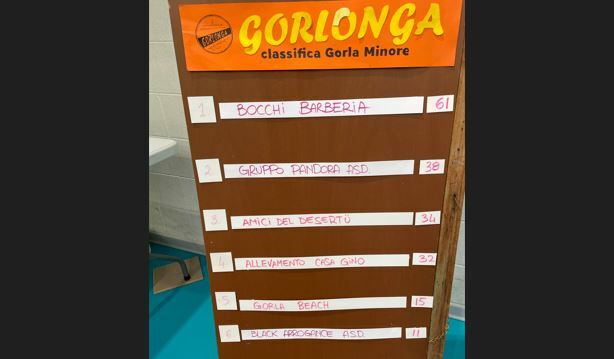 GORLONGA
GORLONGA
classifica Gorla Minore
1. BOCCHI BARBERIA 61
2. GRUPPO PANDORA ASD. 38
3. AMICI DEL DESERTÜ 34
4. ALLEVAMENTO CASA GINO 32
5. GORLA BEACH 15
6. BLACK ARROGANCE A.S.D. 11